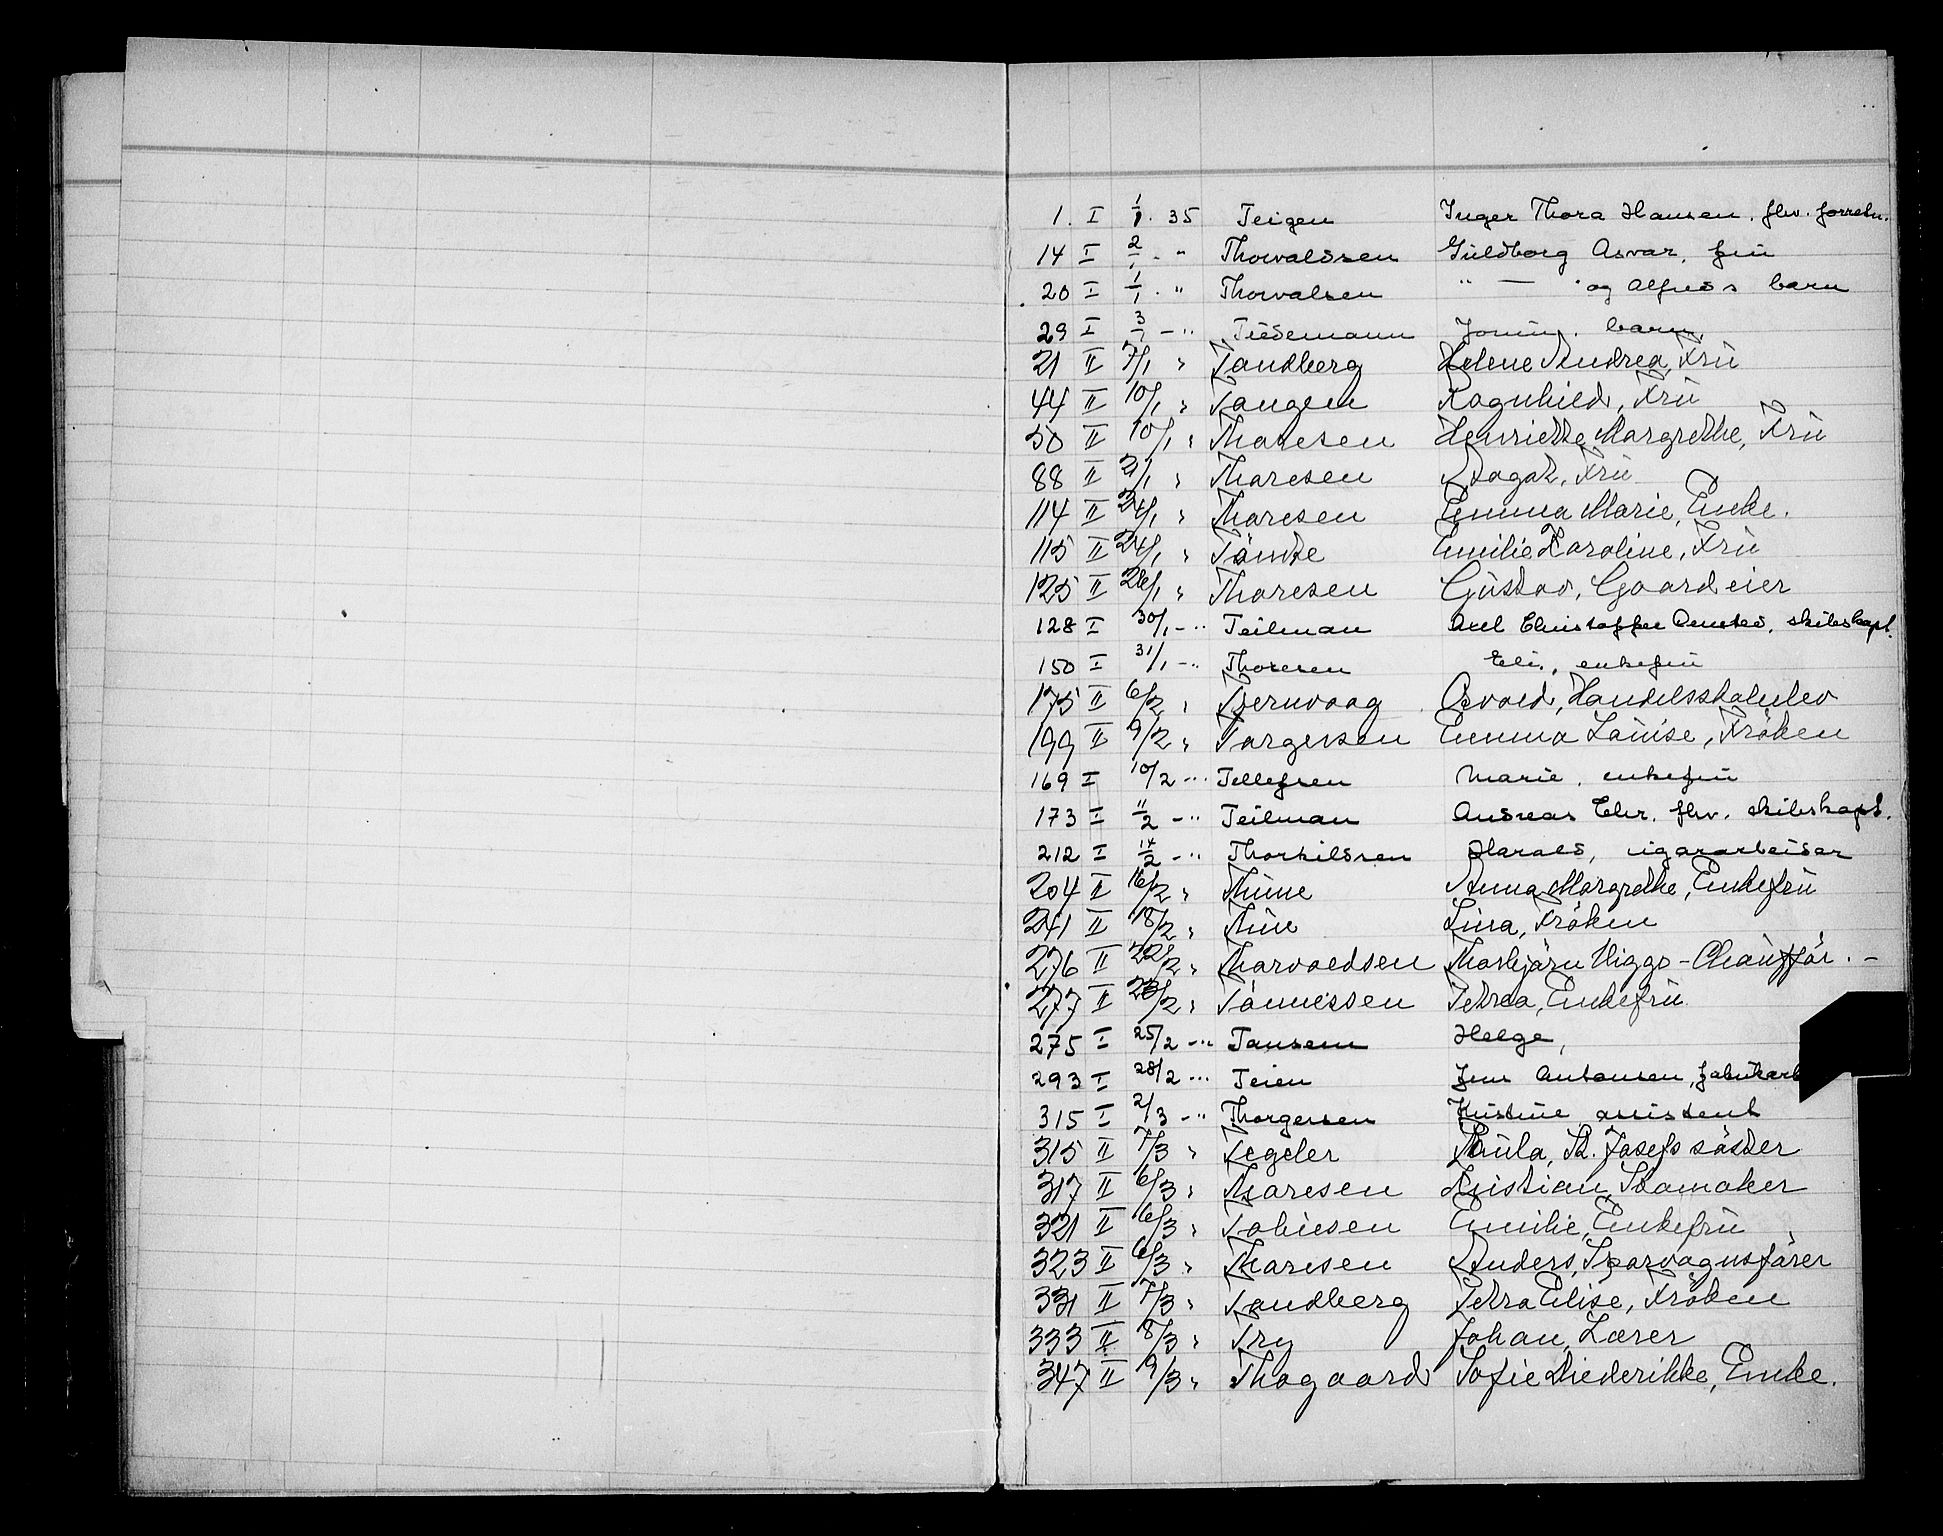 1. I 1/1. 35 Teigen Inger Thora Hansen. fhv. forretn.
14 I 2/1 - " Thorvaldsen Guldborg Asvar, fru
20 I 1/1 . " Thorvalsen " — " og Alfreds barn
29 I 3/1 - " Tiedemann barn
21 II 7/1 " Tandberg Helene Andrea, Fru
44 II 10/1 " Tangen Ragnhild, Fru
50 II 10/1 " Thoresen Henriette Margrethe, Fru
88 II 21/1 " Thoresen Aagot, Fru
114 II 24/1 " Thoresen Emma Marie, Enke.
115 II 24/1 " Tömte Emilie Karoline, Fru
125 II 26/1 " Thoresen Gustav, Gaardeier
128 I 30/1 - " Teilman Axel Christoffer skibskapt.
150 I 31/1 - " Thoresen Eli, enkefru
175 II 6/2 " Tjernvaag Osvald, Handelsskoleelev
199 II 9/2 " Torgersen Emma Louise, Fröken
169 I 10/2 - " Tellefsen Marie, enkefru
173 I 11/2 - " Teilman Andreas Chr. fhv. skibskapt.
212 I 14/2 - " Thorkildsen Harald, sigararbeider
204 II 16/2 " Thune Anna Margrethe, Enkefru
241 II 18/2 " Thue Lina, Fröken
276 II 22/2 " Thorvaldsen Thorbjörn Viggo - Chaufför. -
277 II 23/2 " Tönnessen Petrea, Enkefru
275 I 25/2 - " Tansem Helge,
293 I 28/2 - " Teien Jens Antonsen, fabrikarb
315 I 2/3 - " Thorgersen Kristine assistent
315 II 7/3 " Tegeler Paula, St. Josefs söster
317 II 6/3 " Thoresen Kristian, Skomaker
321 II 6/3 " Tobiesen Emilie, Enkefru
323 II 6/3 " Thoresen Anders, Sporvognsförer
331 II 7/3 " Tandberg Petra Elise, Fröken
333 II 8/3 " Try Johan, Lærer
347 II 9/3 " Thogaard Sofie Diederikke, Enke.